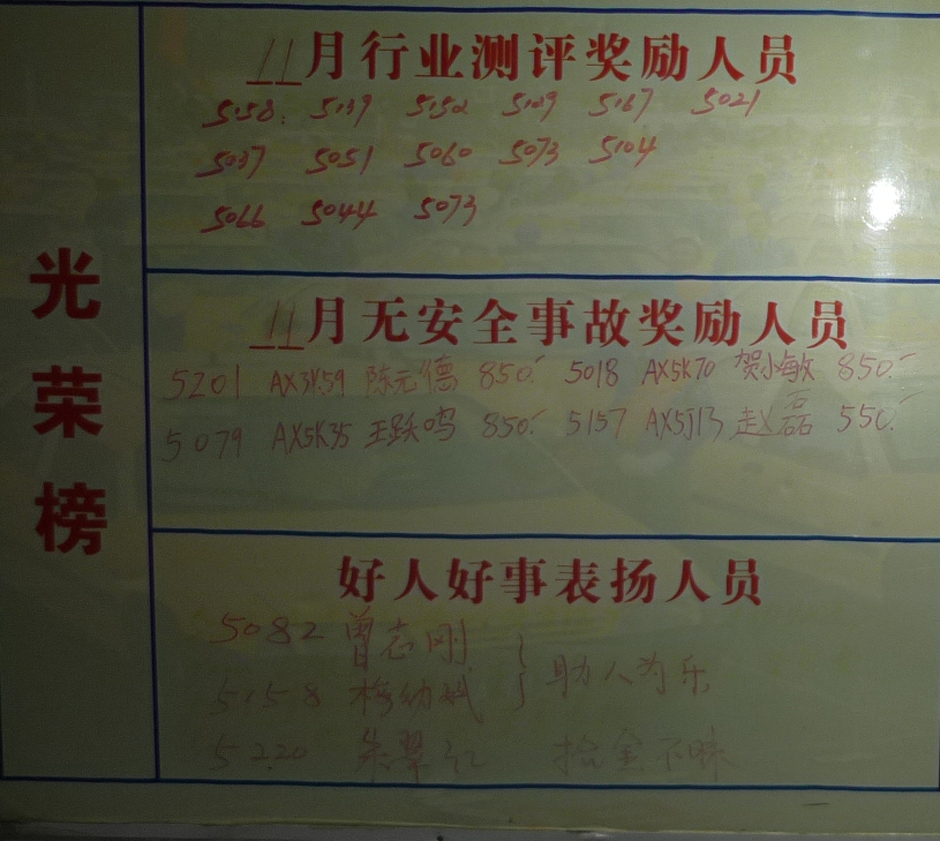 光荣榜
11月行业测评奖励人员
5158. 5139 5152 5129 5167 5021
5037 5051 5060 5073 5104
5066 5044 5073
11月无安全事故奖励人员
5201 AX3Y59 陈元德 850.- 5018 AX5K70 贺小敏 850.-
5079 AX5K35 王跃鸣 850.- 5157 AX5J13 赵磊 550.-
好人好事表扬人员
5082 曾志刚
5158 梅幼斌 } 助人为乐
5220 朱翠红 拾金不昧